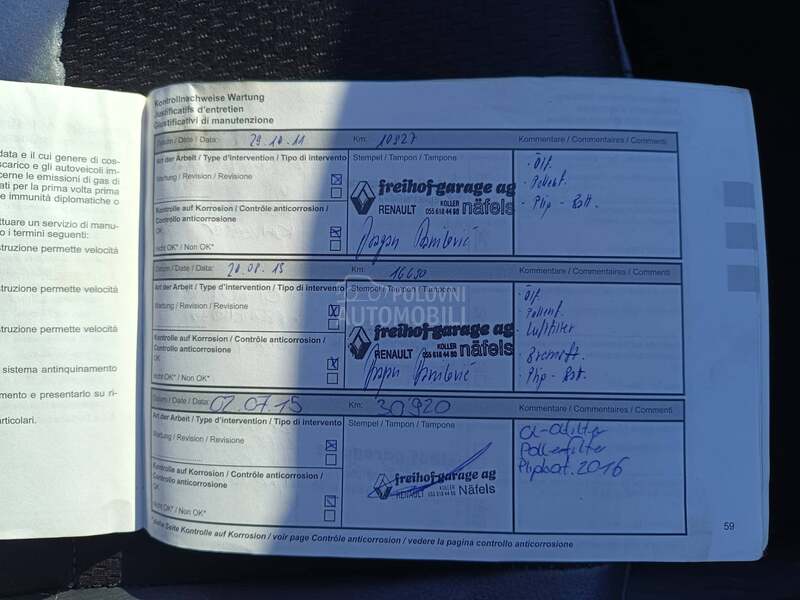 data e il cui genere di cos-
scarico e gli autoveicoli im-
cerne le emissioni di gas di
ati per la prima volta prima
e immunità diplomatiche o
ttuare un servizio di manu-
o i termini seguenti:
struzione permette velocità
struzione permette velocità
struzione permette velocità
sistema antinquinamento
mento e presentarlo su ri-
articolari.
Kontrollnachweise Wartung
Justificatifs d'entretien
Giustificativi di manutenzione
Datum / Date / Data: 29.10.11 Km: 10927 Kommentare / Commentaires / Commenti
Art der Arbeit / Type d'intervention / Tipo di intervento Stempel / Tampon / Tampone
Wartung / Revision / Revisione
Kontrolle auf Korrosion / Contrôle anticorrosion /
Controllo anticorrosione
OK
Nicht OK* / Non OK*
freihof-garage ag
RENAULT KOLLER 055 618 44 80 näfels
Ölf.
Pollenf.
Datum / Date / Data: 20.08.13 Km: 16690 Kommentare / Commentaires / Commenti
Art der Arbeit / Type d'intervention / Tipo di intervento Stempel / Tampon / Tampone
Wartung / Revision / Revisione
Kontrolle auf Korrosion / Contrôle anticorrosion /
Controllo anticorrosione
OK
Nicht OK* / Non OK*
freihof-garage ag
RENAULT KOLLER 055 618 44 80 näfels
Ölf.
Pollenf.
Luftfilter
POLOVNI
AUTOMOBILI
Datum / Date / Data: 02.07.15 Km: 30920 Kommentare / Commentaires / Commenti
Art der Arbeit / Type d'intervention / Tipo di intervento Stempel / Tampon / Tampone
Wartung / Revision / Revisione
Kontrolle auf Korrosion / Contrôle anticorrosion /
Controllo anticorrosione
OK
Nicht OK* / Non OK*
freihof-garage ag
RENAULT KOLLER 055 618 44 80 Näfels
Pollenfilter
Plipbat. 2016
*siehe Seite Kontrolle auf Korrosion / voir page Contrôle anticorrosion / vedere la pagina controllo anticorrosione
59